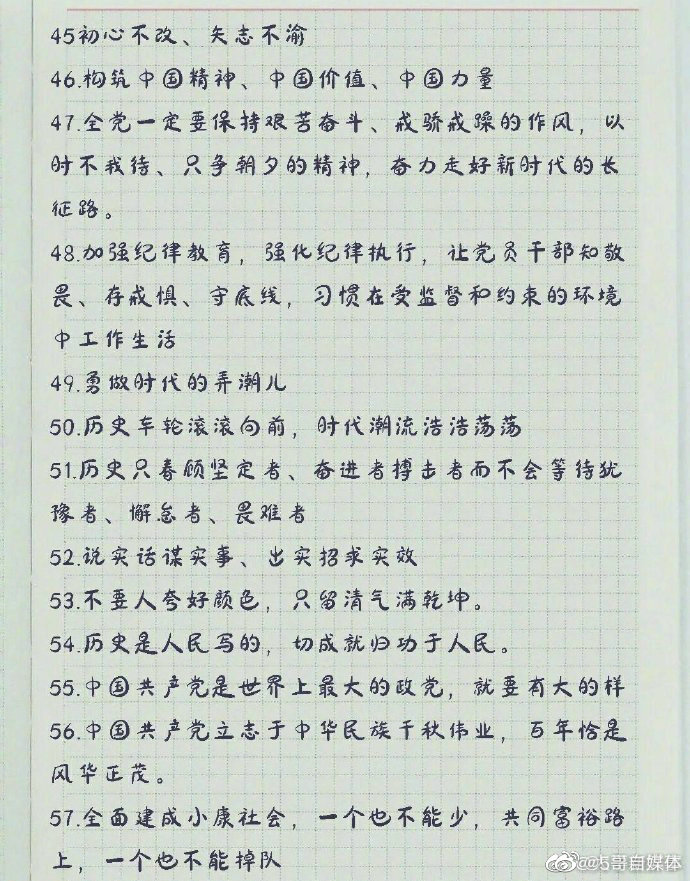 45初心不改、矢志不渝
46.构筑中国精神、中国价值、中国力量
47.全党一定要保持艰苦奋斗、戒骄戒躁的作风，以
时不我待、只争朝夕的精神，奋力走好新时代的长
征路。
48.加强纪律教育，强化纪律执行，让党员干部知敬
畏、存戒惧、守底线，习惯在受监督和约束的环境
中工作生活
49.勇做时代的弄潮儿
50.历史车轮滚滚向前，时代潮流浩浩荡荡
51.历史只春顾坚定者、奋进者搏击者而不会等待犹
豫者、懈怠者、畏难者
52.说实话谋实事、出实招求实效
53.不要人夸好颜色，只留清气满乾坤。
54.历史是人民写的，切成就归功于人民。
55.中国共产党是世界上最大的政党，就要有大的样
56.中国共产党立志于中华民族千秋伟业，百年恰是
风华正茂。
57.全面建成小康社会，一个也不能少，共同富裕路
上，一个也不能掉队
@5哥自媒体